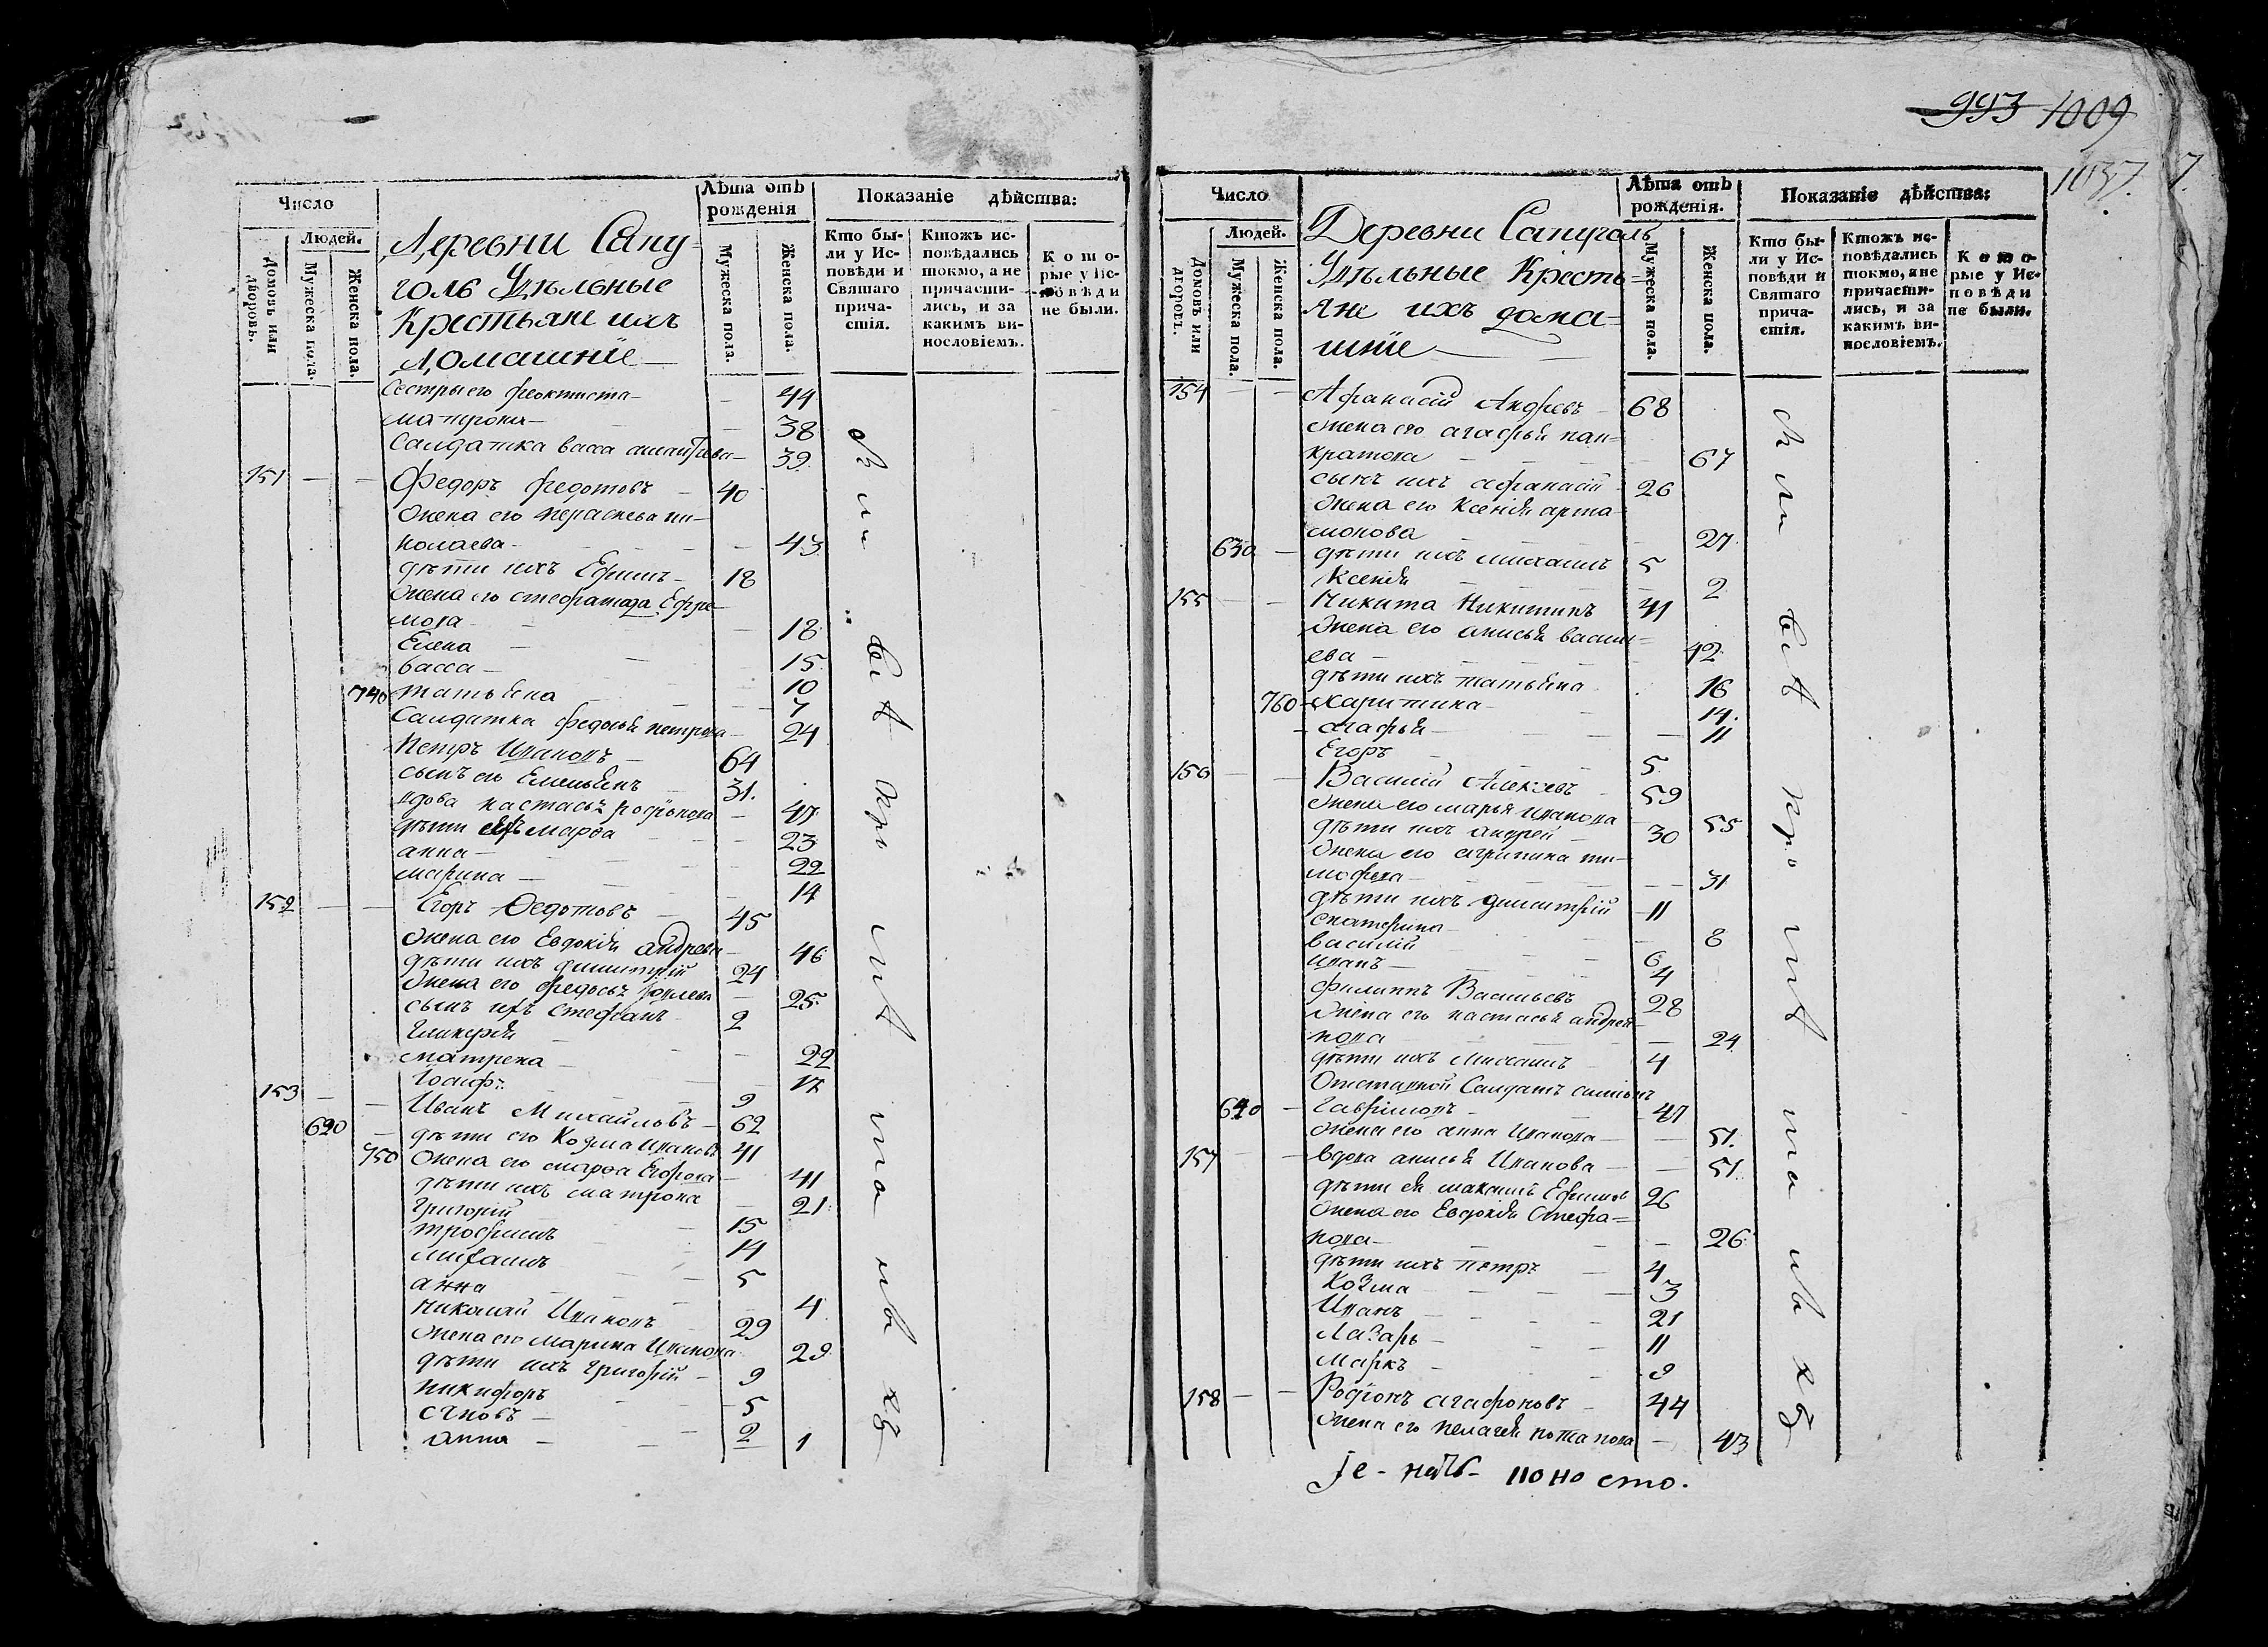 993 1009
1037.
7.
Число
Людей.
Домовъ или дворовъ.
Мужеска пола.
Женска пола.
Деревни Сапу=
голь Удѣльные
Крестьяне ихъ
домашніе
Лѣта отъ рожденія
Мужеска пола.
Женска пола.
Показаніе дѣйства:
Кто бы-
ли у Ис-
повѣди и
Святаго
прича-
стія.
Ктожъ ис-
повѣдались
токмо, а не
причасти-
лись, и за
какимъ ви-
нословіемъ.
Кото-
рые у Ис-
повѣди
не были.
Сестры его феоктиста 44
матрона 38
Салдатка васса 39
151 Федоръ федотовъ 40
жена его параскева ни-
колаева 43
дѣти ихъ Ефимъ 18
жена его Ефре
мова 18
Елена 15
васса 10
740 татьяна 7
Салдатка федосья петрова 24
Петръ Ивановъ 64
сынъ его Емельянъ 31.
вдова настасья родионова 47
дѣти марфа 23
анна 22
марина 14
152 Егоръ Федотовъ 45
жена его Евдокія андреева 46
дѣти ихъ димитрій 24
жена его федосья 25
сынъ ихъ стефанъ 2
гликерія 22
матрена 17
Іосифъ 9
153 Иванъ Михайловъ 62
620 дѣти его Козма Ивановъ 41
750 жена его марфа Егорова 41
дѣти ихъ матрона 21
григорій 15
трофимъ 14
5
анна 4
николай Ивановъ 29
жена его марина Иванова 29
дѣти ихъ григорій 9
никифоръ 5
2
анна 1
Число
Людей.
Домовъ или дворовъ.
Мужеска пола.
Женска пола.
Деревни Сапуголь
Удѣльные Кресть=
яне ихъ дома=
шніе
Лѣта отъ рожденія.
Мужеска пола.
Женска пола.
Показаніе дѣйства:
Кто бы-
ли у Ис-
повѣди и
Святаго
прича-
стія.
Ктожъ ис-
повѣдались
токмо, а не
причасти-
лись, и за
какимъ ви-
нословіемъ.
Кото-
рые у Ис-
повѣди
не были.
154 Афанасій Андревъ 68
жена его агафья пан=
кратова 67
сынъ ихъ афанасій 26
жена его Ксенія арта
монова 27
630 дѣти ихъ михаилъ 5
Ксенія 2
155 Никита Никитинъ 41
жена его анисья васил=
ева 42
дѣти ихъ татьяна 16
760 харитина 14.
агафья 11
Егоръ 5
156 Василій Алексѣвъ 59
жена его марья иванова 55
дѣти ихъ андрей 30
жена его агрипина ти-
мофева 31
дѣти ихъ димитрій 11
екатерина 8
василій 6
иванъ 4
филиппъ Васильевъ 28
жена его настасья андрея
нова 24
дѣти ихъ михаилъ 4
Отставной Салдатъ
640 гавриловъ 47
жена его анна Иванова 51.
157 вдова анисья Иванова 51.
дѣти ея максимъ Ефимов 26
жена его Евдокія Стефа=
нова 26
дѣти ихъ петръ 4
Козма 3
Иванъ 21
Лазарь 11
Маркъ 9
158 Родіонъ агафоновъ 44
жена его пелагея потапова 43